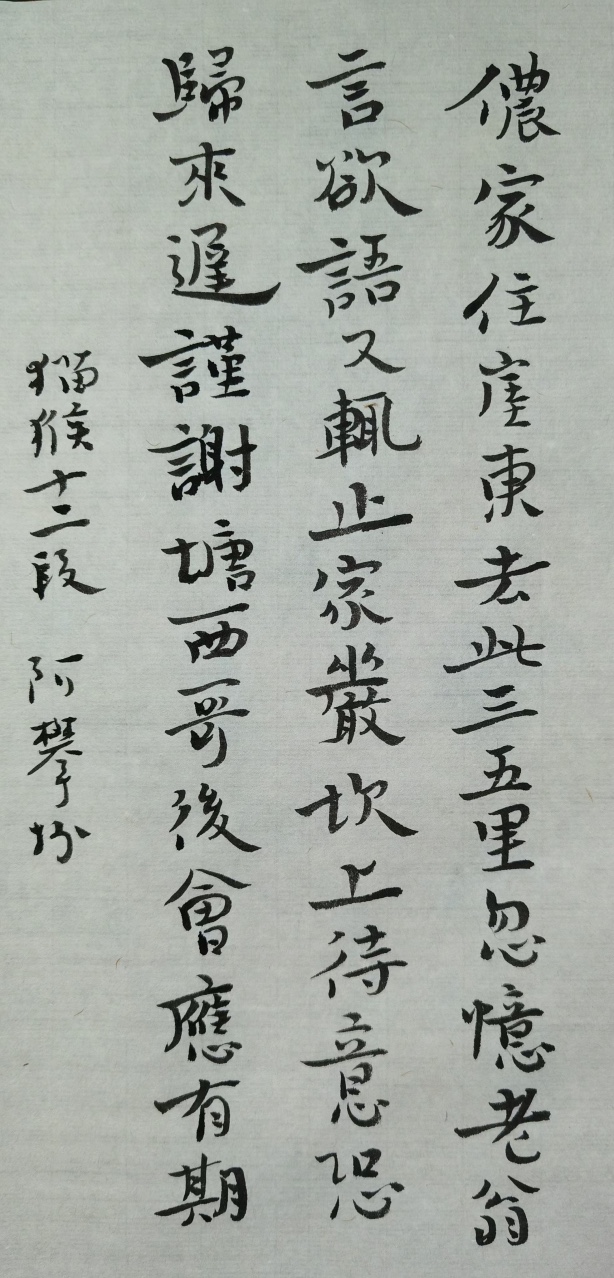 儂家住崖東去此三五里忽憶老翁
言欲語又輒止家巖坎上待意恐
歸來遲謹謝塘西哥後會應有期
猫猴十二段 阿攀抄